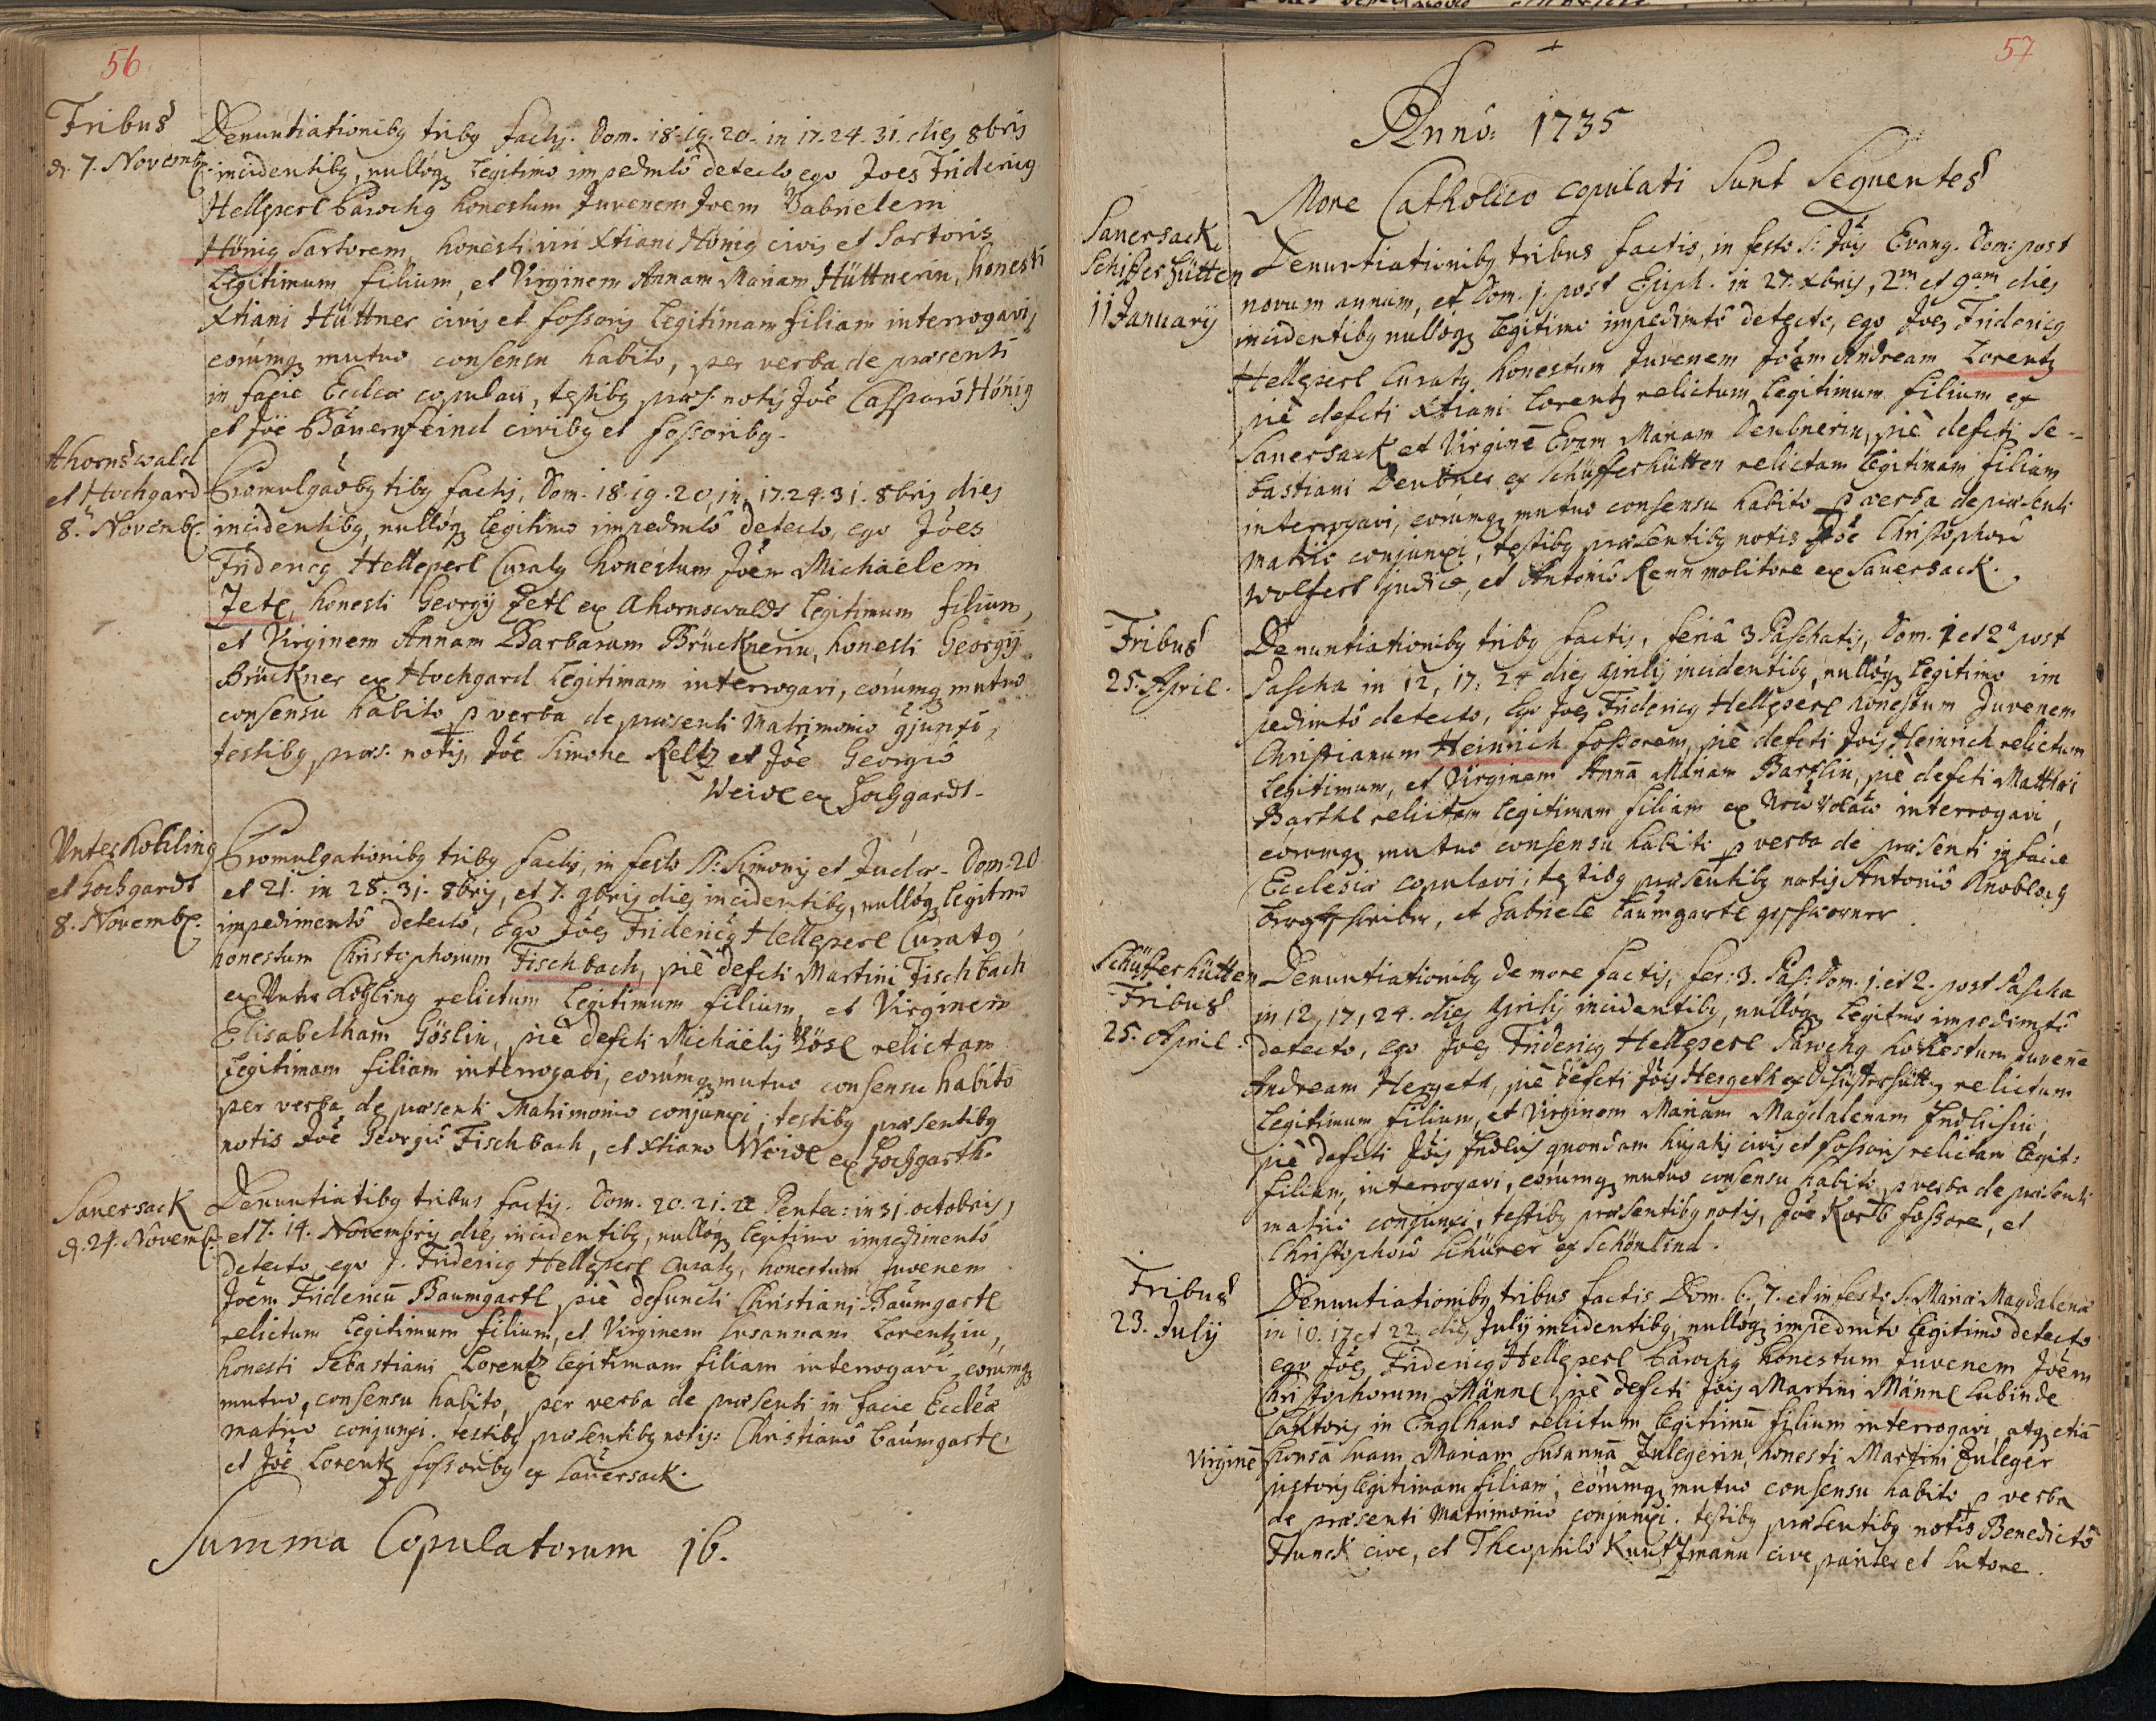 56
Fribus
d. 7. Novemb.
Denuntiationibq tribq factis. Dom. 18. 19. 20. in 17. 24. 31. dies 8bris
incidentibq, nulloq legitimo impedmto detecto, ego Joes Fridericq
Hellperl Parochq honestum Juvenem Joem Gabrielem
Hönig Sartorem, honesti viri Xtiani Hönig civis et Sartoris
Legitimum filium, et Virginem Annam Mariam Hüttnerin, honesti
Xtiani Hüttner civis et fossoris legitimam filiam interrogavi,
eorumq mutuo consensu habito, per verba de praesenti
in facie Eccliae copulavi, testibq praes. notis Joe Casparo Hönig
et Joe Bauernfeind civibq et fossoribq.
Ahornswald
et Hochgard
8. Novemb.
Promulgaoibq tribq factis, Dom. 18. 19. 20, in 17. 24. 31. 8bris dies
incidentibq, nulloq legitimo impedmto detecto, ego Joes
Fridericq Hellperl Curatq honestum Joem Michaelem
Zetl, honesti Georgij Zetl ex Ahornswaldt legitimum filium,
et Virginem Annam Barbaram Brücknerin, honesti Georgij
Brückner ex Hochgard legitimam interrogavi, eorumq mutuo
consensu habito p verba de praesenti Matrimonio gjunxi,
testibq praes. notis, Joe Simone Reltz et Joe Georgio
Weidl ex Hochgardt.
Unter Kohling
et Hochgardt
8. Novemb.
Promulgationibq tribq factis, in festo SS. Simonis et Judae. Dom: 20
et 21. in 28. 31. 8bris, et 7. 9bris dies incidentibq, nulloq legitimo
impedimento detecto, Ego Joes Fridericq Hellperl Curatq
honestum Christophorum Fischbach, piè defcti Martini Fischbach
ex Unter Kohling relictum legitimum filium, et Virginem
Elisabetham Göslin, piè defcti Michäelis Gösl relictam
Legitimam filiam interrogavi, eorumq mutuo consensu habito
per verba de praesenti Matrimonio conjunxi, testibq praesentibq
notis Joe Georgio Fischbach, et Xtiano Weidl ex Hochgarth.
Sauersack
d. 24. Novemb.
Denuntiatibq tribus factis. Dom. 20. 21. 22 Pentec: in 31. octobris,
et 7. 14. Novembris dies incidentibq, nulloq legitimo impedimento
detecto, ego J. Fridericq Hellperl Curatq, honestum Juvenem
Joem Fridericu Baumgartl piè defuncti Christiani Baumgartl
relictum legitimum filium, et Virginem Susannam Lorentzin,
honesti Sebastiani Lorentz legitimam filiam interrogavi, eorumq
mutuo, consensu habito, per verba de praesenti in facie Eccleae
matrio conjunxi. testibq praesentibq notis: Christiano Baumgartl
et Joe Lorentz fossoribq ex Sauersack.
Summa Copulatorum 16.
57
Anno: 1735
More Catholico copulati sunt Sequentes
Sauersack,
Schifferhütten
11 January
Denuntiationibq tribus factis, in festo S: Jois Evang. Dom: post
novum annum, et Dom. 1. post Epiph. in 27. Xbris, 2m et 9am dies
incidentibq nulloq legitimo impedmto detecto, ego Joes Fridericq
Hellperl Curatq honestum Juvenem Joem Andream Lorentz
piè defcti Xtiani Lorentz relictum legitimum filium ex
Sauersack et Virginē Evam Mariam Deubnerin, piè defcti Se-
bastiani Deubner ex Schüfferhütten relictam legitimam filiam
interrogavi, eorumq mutuo consensu habito p verba de praesenti
matrio conjunxi, testibq praesentibq notis Joe Christophoro
Wolfert judice, et Antonio Renn molitore ex Sauersack.
Fribus
25. April.
Denuntiationibq tribq factis, feria 3 Paschatis, Dom. 1 et 2a post
Pascha in 12, 17. 24 dies aprilis incidentibq, nulloq legitimo im
pedimto detecto, Ego Joes Fridericq Hellperl honestum Juvenem
Christianum Heinrich fossorem, piè defcti Jois Heinrich relictum
Legitimum, et Virginem Annā Mariam Barthlin, piè defcti Matthaei
Barthl relictam legitimam filiam ex interrogavi,
eorumq mutuo consensu habito p verba de praesenti in facie
Ecclesiae copulavi; testibq praesentibq notis Antonio Knobloch
Bergschreiber, et Gabriele Baumgartl geschworner
Schüfferhütten
Fribus
25. April.
Denuntiationibq de more factis, fer: 3. Pas: Dom. 1. et 2. post Pascha
in 12, 17, 24. dies aprilis incidentibq, nulloq legitimo impedimto
detecto, ego Joes Fridericq Hellperl Parochq honestum Juvenē
Andream Hergeth, piè defcti Jois Hergeth ex Schüfferhütt relictum
Legitimum filium, et Virginem Mariam Magdalenam Endlichin,
piè defcti Jois quondam hujatis civis et fossoris relictam legit:
filiam, interrogavi, eorumq mutuo consensu habito, p verba de praesenti
matrio conjunxi, testibq praesentibq notis, Joe Korb fossore, et
Christophoro Schürer ex Schönlind.
Fribus
23. July
Denuntiationibq tribus factis Dom. 6. 7. et in festo S. Mariae Magdalenae
in 10. 17 et 22. dies July incidentibq, nulloq impedmto legitimo detecto
ego Joes Fridericq Hellperl Parochq honestum Juvenem Joem
Christophorum Männl piè defcti Jois Martini Männl
in Englhaus relictum legitimū filium interrogavi, atq etiā
Virginē
Sponsā suam Mariam Susannā Zulegerin, honesti Martini Zuleger
pistoris legitimam filiam; eorumq mutuo consensu habito p verba
de praesenti Matrimonio conjunxi. testibq praesentibq notis Benedicto
Funck cive, et Theophilo Kuntzmann cive pariter et sutore.